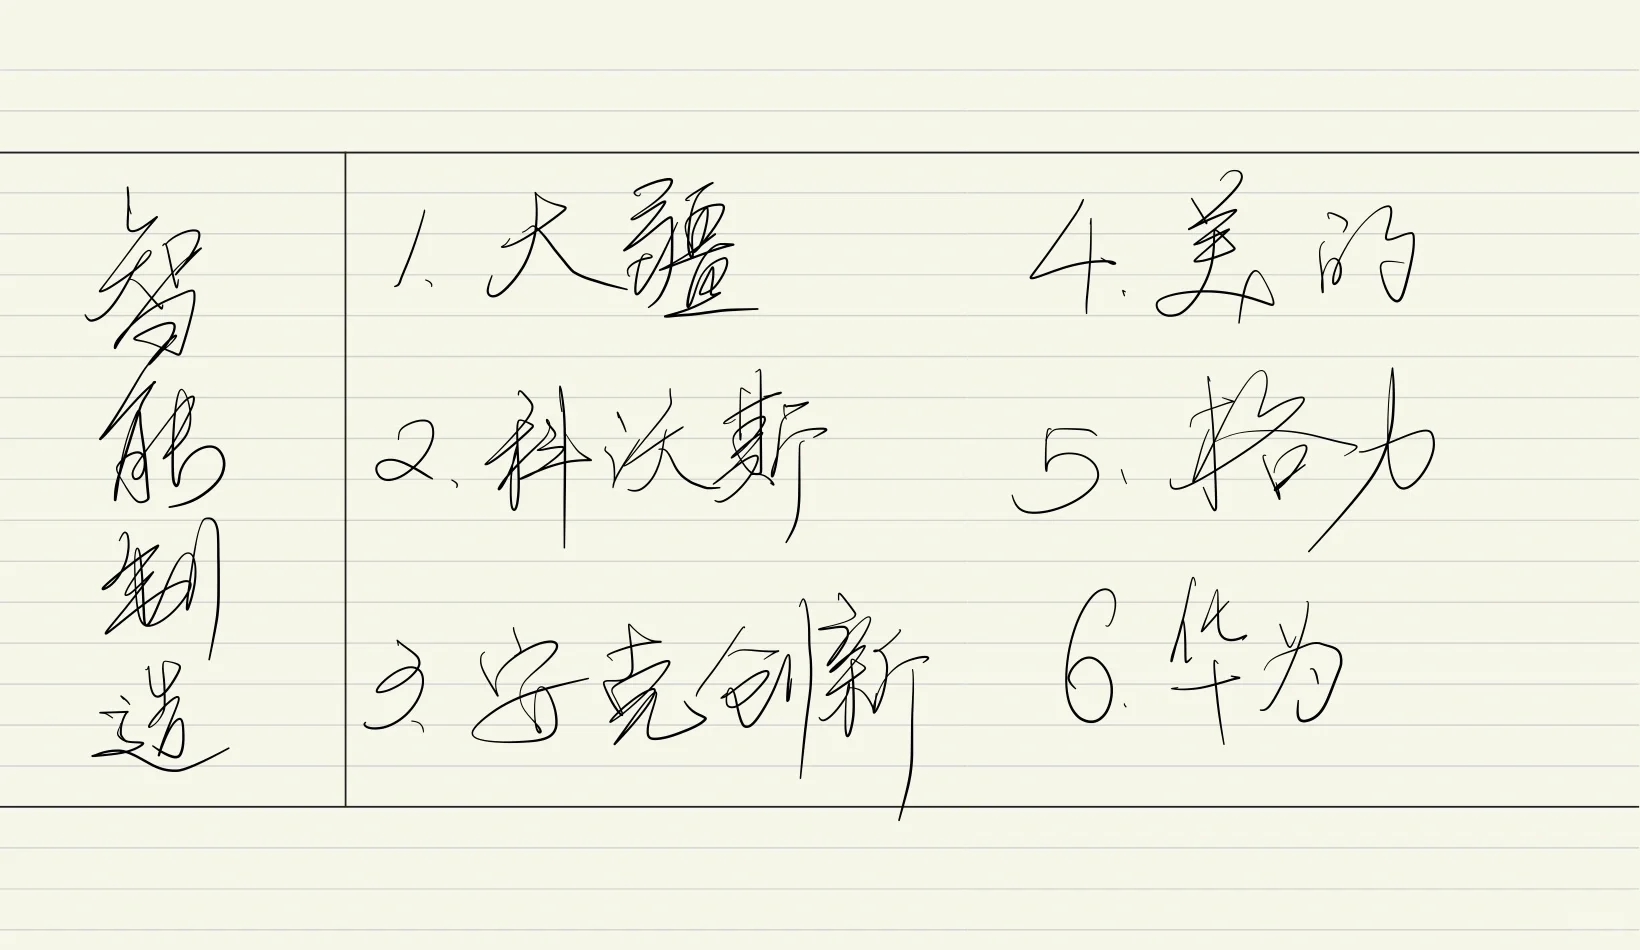 智能制造
1、大疆
2、科沃斯
3、安克创新
4、美的
5、格力
6、华为